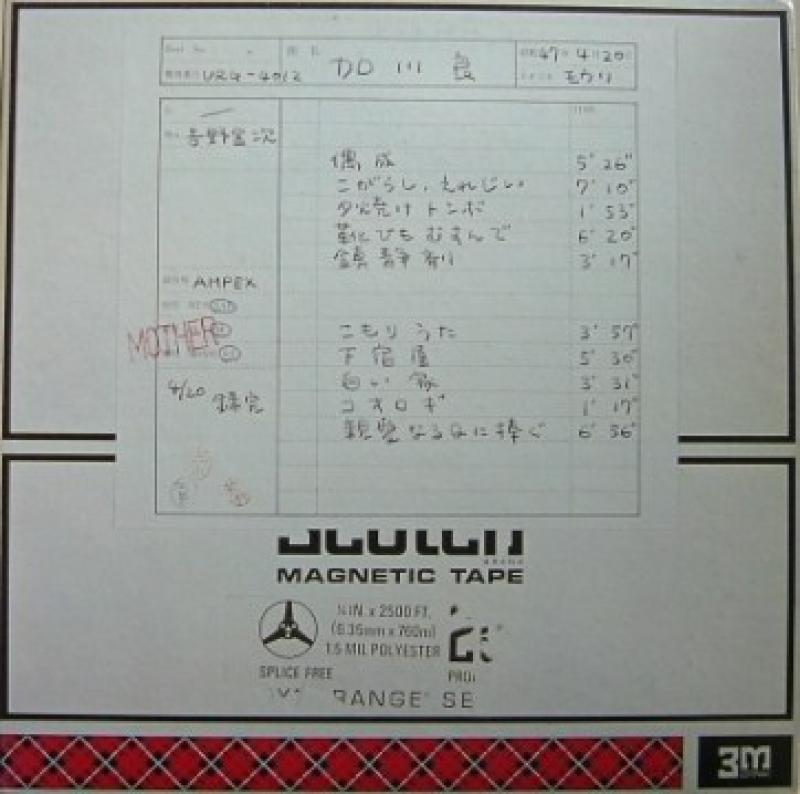 URG-4012 加川良 47 4月20日
モウリ
吉野金次
偶成 5' 26"
こがらし、えれじい 7' 10"
夕焼け トンボ 1' 53"
靴ひも むすんで 6' 20"
鎮静剤 3' 17"
AMPEX
MOTHER
こもりうた 3' 57"
下宿屋 5' 30"
白い家 3' 31"
4/20 録完
コオロギ 1' 17"
親愛なるQに捧ぐ 6' 36"
Scotch
BRAND
MAGNETIC TAPE
¼ IN. x 2500 FT.
(6.35mm x 760m)
1.5 MIL POLYESTER
SPLICE FREE
RANGE SE
3M